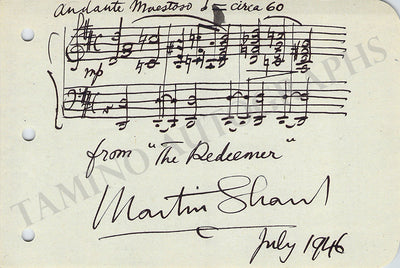 Andante Maestoso ♩ = circa 60
mp
from "The Redeemer"
Martin Shaw
July 1946
TAMINO AUTOGRAPHS